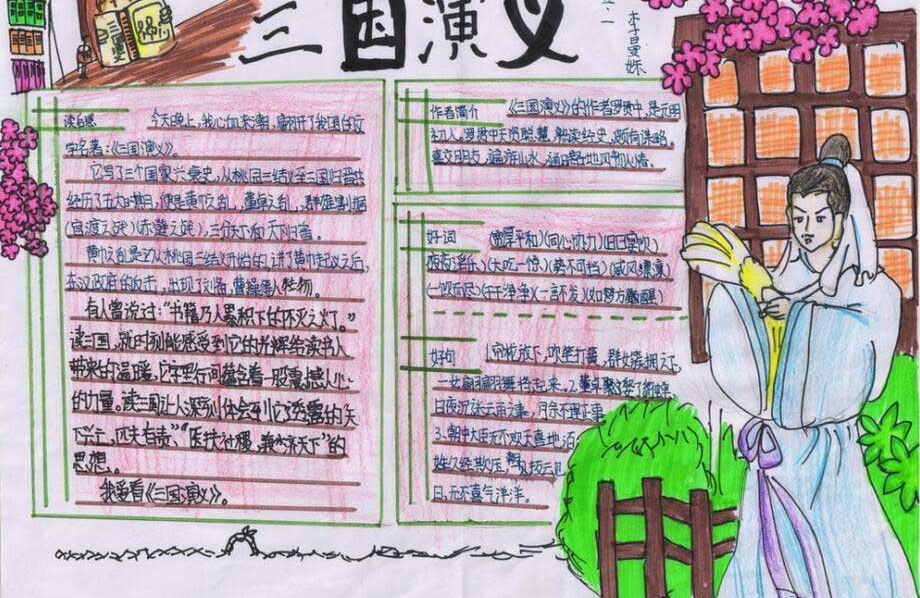 三国演义
五·一
李曼姝
读后感
今天晚上,我心血来潮,翻开了我国的文
学名著:《三国演义》。
它写了三个国家兴衰史,从桃园三结义至三国归晋共
经历了五大时期,便是黄巾之乱,董卓之乱,群雄割据
(官渡之战)(赤壁之战),三分天下和天下归晋。
黄巾之乱是以桃园三结义开始的,讲了黄巾起义之后,
东汉政府的反击,出现了刘备,曹操等人物。
有人曾说过:“书籍乃人累积下的不灭之灯。”
读三国,就时刻能感受到它的光辉给读书人
带来的温暖,它字里行间蕴含着一股震撼人心
的力量。读三国让人深刻体会到它透露的“天
下兴亡,匹夫有责”、“匡扶社稷,兼济天下”的
思想。
我爱看《三国演义》。
作者简介
《三国演义》的作者罗贯中,是元明
初人,罗贯中天资聪慧,
喜交朋友,遍游山水,
好词
(宽厚平和)(同心协力)(日日宴饮)
(夜夜淫乐)(大吃一惊)(势不可挡)(威风凛凛)
(一饮而尽)(干干净净)(一言不发)(如梦方醒)
好句
1.帘栊放下,吹笙打簧,群女簇拥之下
一女翩翩舞将起来。2.董卓娶了貂蝉
日夜沉
3.朝中大臣无不欢天喜地